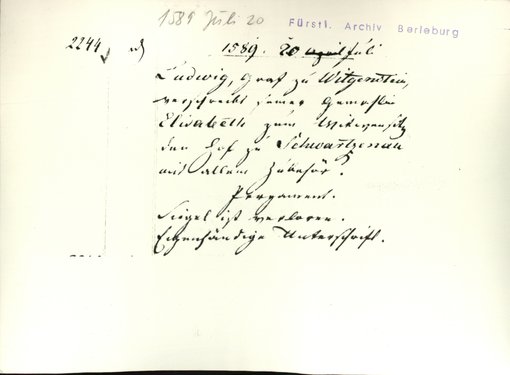 1589 Juli 20
Fürstl. Archiv Berleburg
2244
1589. 20 april Juli
Ludwig, Graf zu Witgenstein,
verschreibt seiner Gemahlin
Elisabeth zum Witwensitz
den Hof zu Schwartzenau
mit allem Zubehör.
Pergament.
Siegel ist verloren.
Eigenhändige Unterschrift.